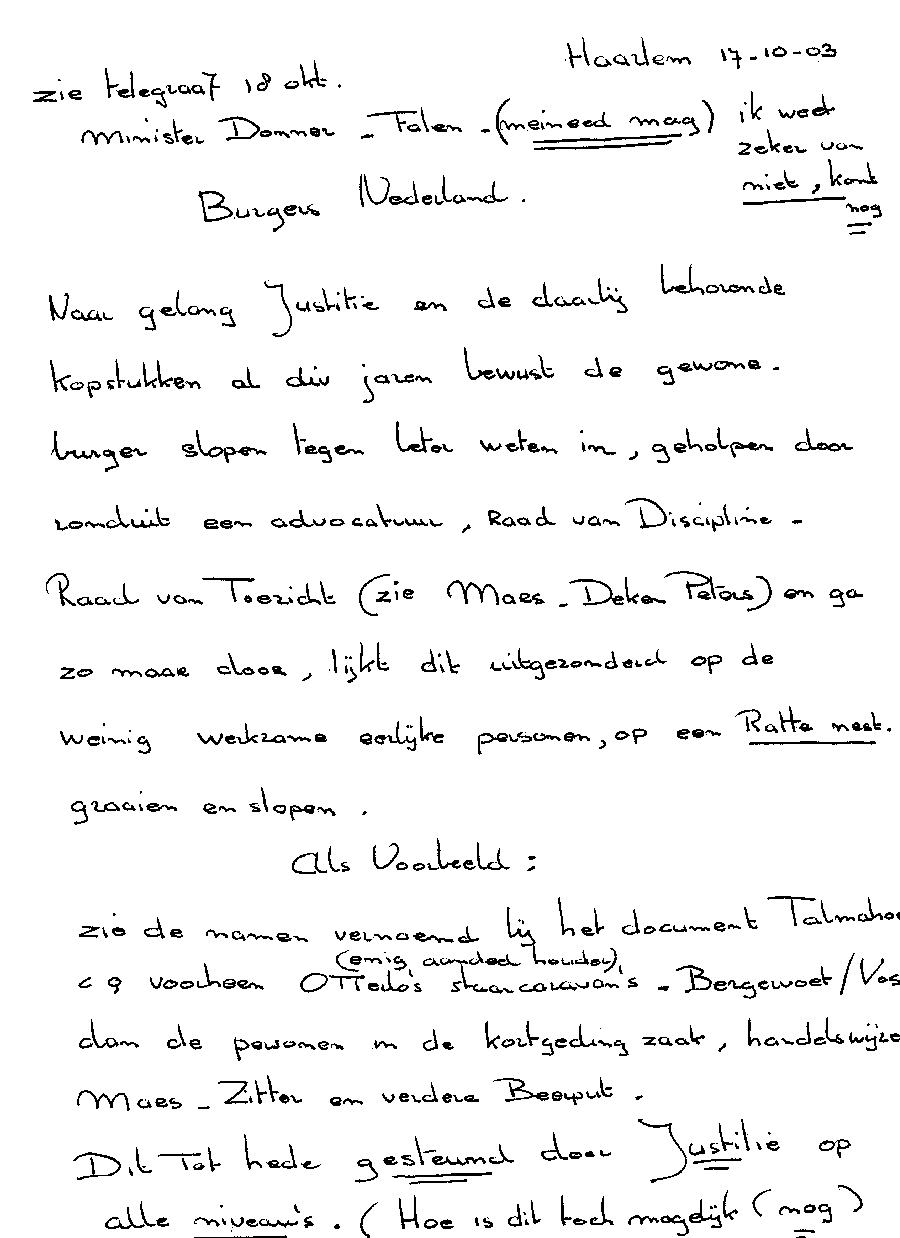 Haarlem 17-10-03
zie telegraaf 18 okt.
Minister Donner - Falen - (meineed mag) ik weet
zeker van
niet, komt
nog
Burgers Nederland.
Naar gelang Justitie en de daarbij behorende
kopstukken al div jaren bewust de gewone.
burger slopen tegen beter weten in, geholpen door
ronduit een advocatuur, Raad van Discipline -
Raad van Toezicht (zie Maes - Deken Peters) en ga
zo maar door, lijkt dit uitgezonderd op de
weinig werkzame eerlijke personen, op een Ratte nest.
graaien en slopen.
Als Voorbeeld:
zie de namen vernoemd bij het document Talmaho
(enig aandeel houder)
c q voorheen OTTedo's stacaravan's - Bergewoet/Vos
dan de personen in de kortgeding zaak, handelswijze
Maes - Zitter en verdere Beerput.
Dit Tot hede gesteund door Justitie op
alle niveau's. (Hoe is dit toch mogelijk (nog)